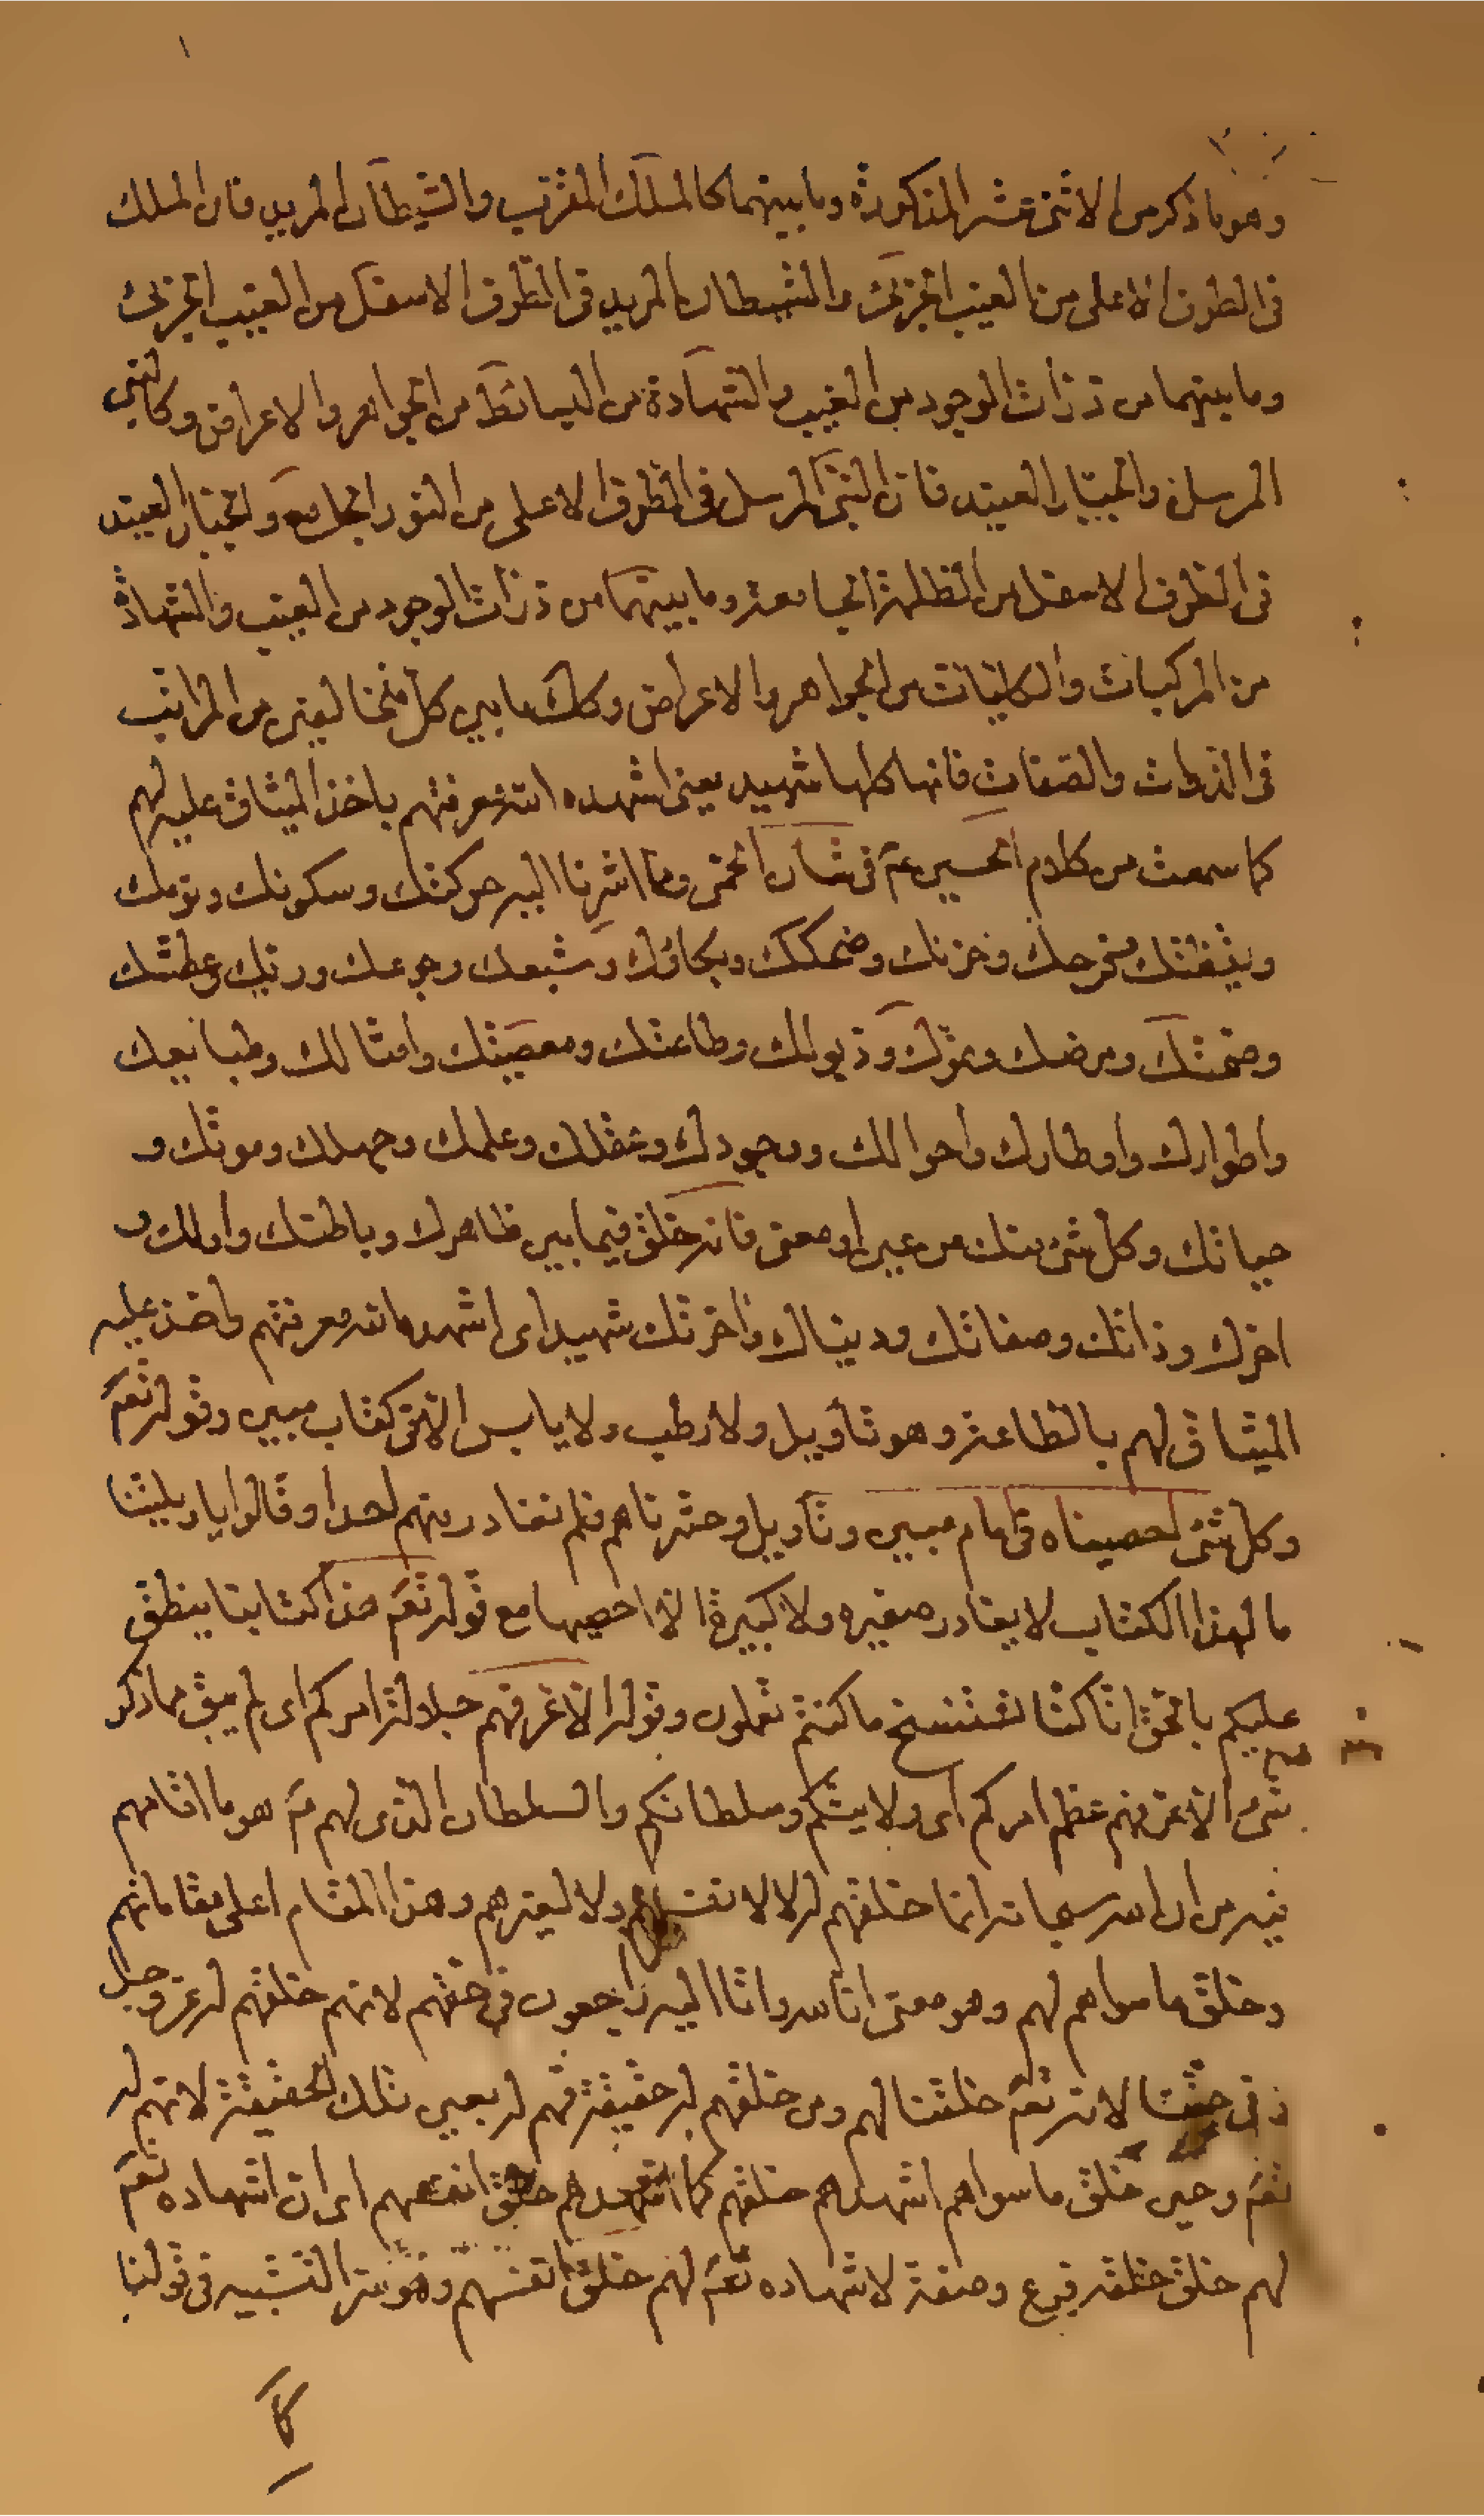 وهو ما ذكر من الاثنى عشر المذكورة وما بينهما كالملك المقرّب والشيطان المريد فان الملك
فى الطرف الاعلى من الغيب الجزئى والشيطان المريد فى الطرف الاسفل من الغيب الجزئى
وما بينهما من ذرات الوجود من الغيب والشهادة من البسائط من الجواهر والاعراض وكالنبى
المرسل والجبّار العنيد فان النبى المرسل فى الطرف الاعلى من النور الجامع والجبّار العنيد
فى الطرف الاسفل من الظلمة الجامعة وما بينهما من ذرات الوجود من الغيب والشهادة
من المركبات والكليات من الجواهر والاعراض وكذلك ما بين كل متخالفين من المراتب
فى الذوات والصفات فانها كلها شهيد يعنى اشهده الله معرفتهم باخذ الميثاق عليه لهم
كما سمعت من كلام الحسين عم فى شان الحمى ومما اشرنا اليه حركتك وسكونك ونومك
ويقظتك وفرحك وحزنك وضحكك وبكاؤك وشبعك وجوعك وريك وعطشك
وصحتك ومرضك ونموّك وذبولك وطاعتك ومعصيتك وامثالك وطبايعك
واطوارك واوطارك واحوالك ووجودك وعقلك وعلمك وجهلك وموتك و
حياتك وكل شئ منك من عين او معنى فانه خلق فيما بين ظاهرك وباطنك واولك و
اخرك وذاتك وصفاتك ودنياك واخرتك شهيدا اى اشهده الله معرفتهم واخذ عليه
الميثاق لهم بالطاعة وهو تاويل ولا رطب ولا يابس الا فى كتاب مبين وقوله تعم
وكل شئ احصيناه فى امام مبين وتاويل وحشرناهم فلم نغادر منهم احدا وقالوا يا ويلتنا
ما لهذا الكتاب لا يغادر صغيره ولا كبيرة الا احصيها مع قوله تعم هذا كتابنا ينطق
عليكم بالحق انا كنا نستنسخ ما كنتم تعملون وقوله الا عرفهم جلالة امركم اى لم يبق مما ذكر
شئ الا عرفهم عظم امركم اى ولايتكم وسلطانكم والسلطان الذى لهم عم هو ما اقامهم
فيه من ان الله سبحانه انما خلقهم له لا لانفسهم ولا لغيرهم وهذا المقام اعلى مقاماتهم
وخلق ما سواهم لهم وهو معنى انا لله وانا اليه راجعون فى حقهم لانهم خلقهم له عز وجل
وفى حقنا لانه تعم خلقنا لهم ومن خلقهم له حقيقة فهم له بعين تلك الحقيقة لانهم له
تعم وحين خلق ما سواهم اشهدهم خلقهم كما اشهدهم خلق انفسهم اى ان اشهاده تعم
لهم خلق خلقه فرع وصفة لاشهاده تعم لهم خلق انفسهم وهو سر التشبيه فى قولنا
كما